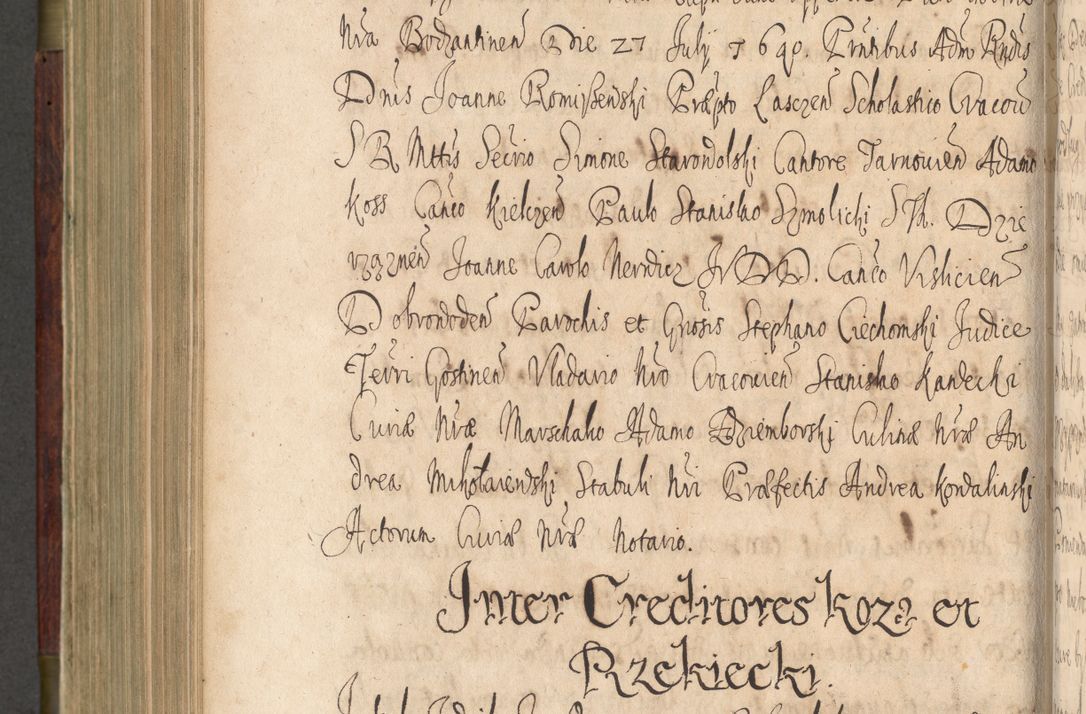 nra Bodzantinen Die 27 July 1690. Pntibus Adm Rndis
Dnis Joanne Romiszewski Præpto Lasczen Scholastico Cracou
S R Mttis Secrio Simone Starowolski Cantore Tarnouien Adamo
Koss Canco Kielczen Paulo Stanislao Szmolichi S Th. D
Joanne Carolo Nerudicz JVDD. Canco Vislicien
Dobrowoden Parochis et Grosis Stephano Ciechomski Judice
Terri Gostinen Vladario nro Cracouien Stanislao Kandecki
Curiæ nræ Marschalco Adamo Dziemborski Culinæ nræ An
drea Mikołaiewski Stabuli nri Præfectis Andrea Kowalinski
Actorum Curiæ nræ Notario.
Inter Creditores Koza et
Rzekiecki.